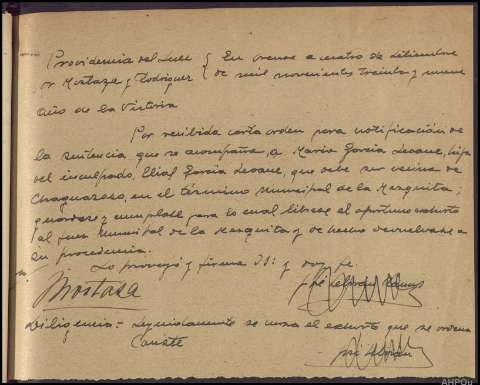 Providencia del Juez { En Orense a cuatro de diciembre
Sr Mostaza y Rodriguez { de mil novecientos treinta y nueve
Año de la Victoria
Por recibida carta orden para notificación de
la sentencia que se acompaña, a Maria Garcia Seoane, hija
del inculpado, Elias Garcia Seoane, que debe ser vecina de
Chaguazoso, en el término municipal de la Mezquita;
guardese y cumplase para lo cual librese el oportuno exhorto
al Juez Municipal de la Mezquita y de hecho devuelvase a
su procedencia.
Lo proveyó y firma Sª: y doy fe.
Mostaza
Diligencia = Seguidamente se cursa el exhorto que se ordena
Conste
AHPOu